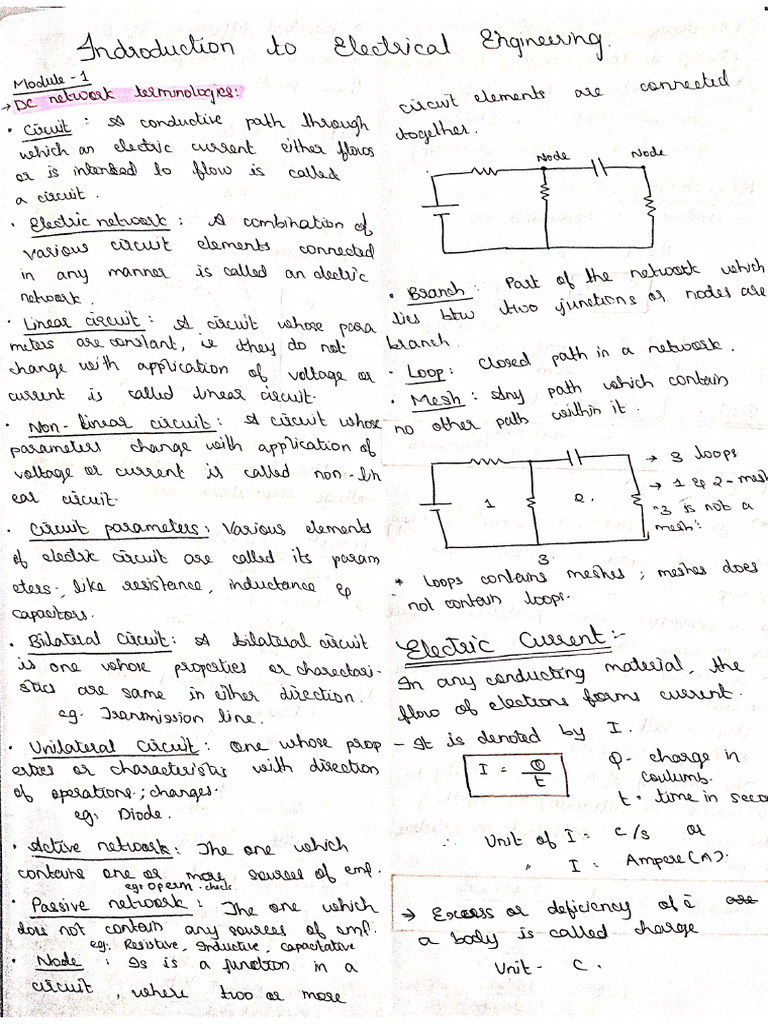 Indroduction to Electrical Engineering.
Module - 1
→ DC network terminologies:
• Circuit : A conductive path through
which an electric current either flows
or is intended to flow is called
a circuit.
• Electric network : A combination of
various circuit elements connected
in any manner is called an electric
network.
• Linear circuit : A circuit whose para
meters are constant, ie they do not
change with application of voltage or
current is called linear circuit.
• Non-linear circuit : A circuit whose
parameters change with application of
voltage or current is called non-lin
ear circuit.
• Circuit parameters : Various elements
of electric circuit are called its param
eters, like resistance, inductance &
capacitors.
• Bilateral Circuit : A bilateral circuit
is one whose properties or charectari-
stics are same in either direction.
eg. Transmission line.
• Unilateral Circuit : One whose prop
erties or characteristics with direction
of operations ; changes.
eg: Diode.
• Active network : The one which
contains one or more sources of emf.
eg:
• Passive network : The one which
does not contain any sources of emf.
eg: Resistive, Inductive, capacitative
• Node : Is is a function in a
circuit, where two or more
circuit elements are connected
together.
Node Node
• Branch : Part of the network which
lies btw two junctions or nodes are
branch.
• Loop : closed path in a network.
• Mesh : Any path which contain
no other path within it.
1 2.
3
→ 3 loops
→ 1 & 2 - mesh
"3 is not a
mesh"
* Loops contains meshes ; meshes does
not contain loops.
Electric Current :-
In any conducting material, the
flow of electrons forms current.
- It is denoted by I.
I = Q/t
Q - charge in
coulumb.
t - time in seco
∴ Unit of I = C/s or
" I = Ampere (A).
→ Excess or deficiency of ē are
a body is called charge
Unit - C.